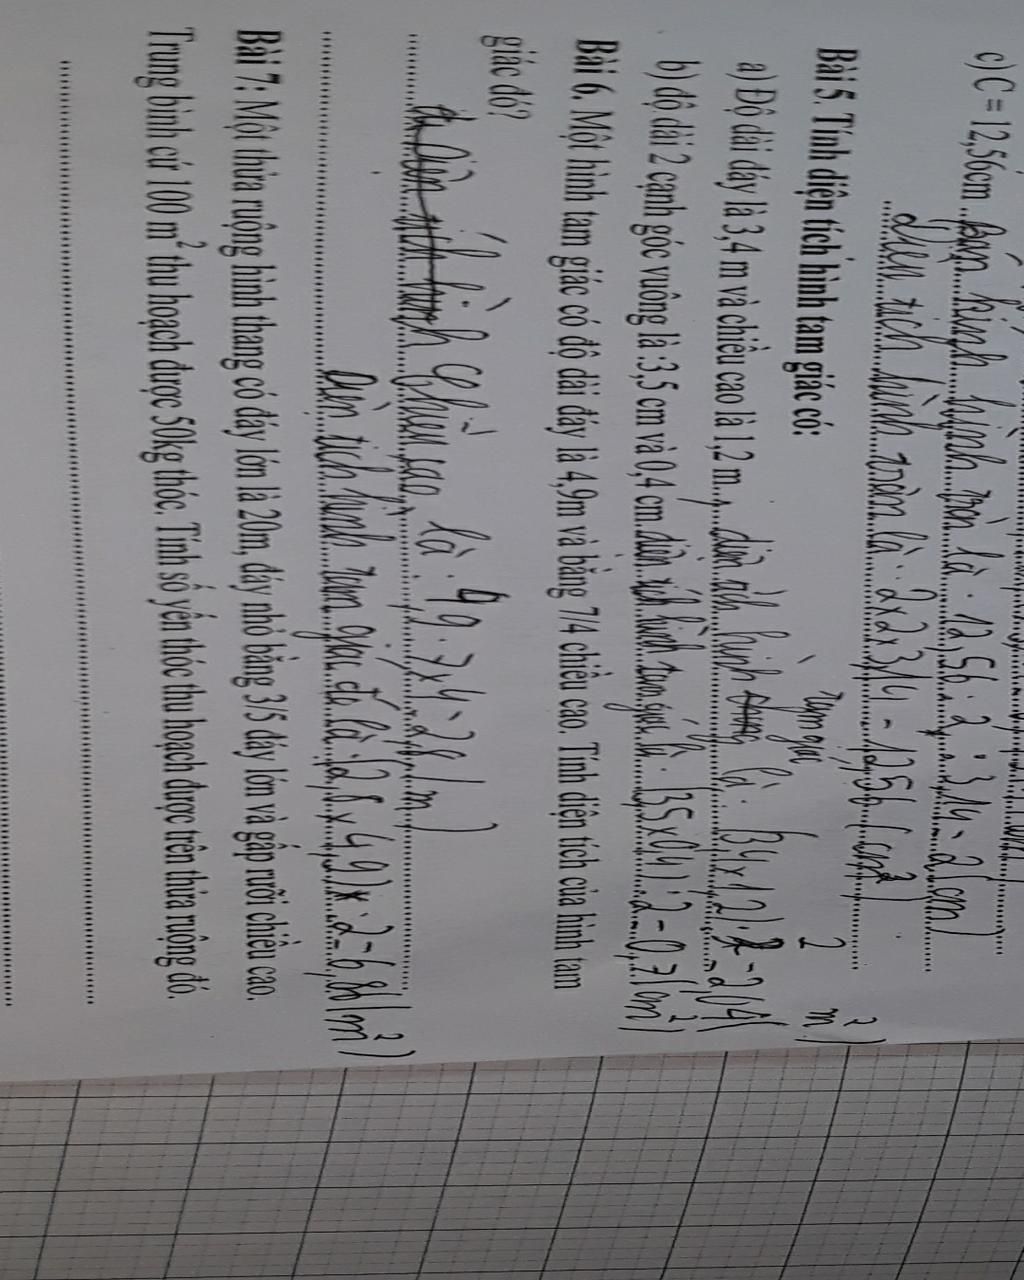 c) C = 12,56cm ..Bán kính hình tròn là : 12,56 : 2 : 3,14 = 2 (cm)
diện tích hình tròn là : 2 x 2 x 3,14 = 12,56 (cm²)
Bài 5. Tính diện tích hình tam giác có:
tam giác 2 m²)
a) Độ dài đáy là 3,4 m và chiều cao là 1,2 m.. diện tích hình là : (3,4 x 1,2) : 2 = 2,04 (
b) độ dài 2 cạnh góc vuông là :3,5 cm và 0,4 cm.diện tích hình tam giác là : (3,5 x 0,4) : 2 = 0,7 (cm²)
Bài 6. Một hình tam giác có độ dài đáy là 4,9m và bằng 7/4 chiều cao. Tính diện tích của hình tam
giác đó?
Chiều cao là : 4,9 : 7 x 4 = 2,8 (m)
Diện tích hình tam giác đó là : (2,8 x 4,9) : 2 = 6,86 (m²)
Bài 7: Một thửa ruộng hình thang có đáy lớn là 20m, đáy nhỏ bằng 3/5 đáy lớn và gấp rưỡi chiều cao.
Trung bình cứ 100 m² thu hoạch được 50kg thóc. Tính số yến thóc thu hoạch được trên thửa ruộng đó.